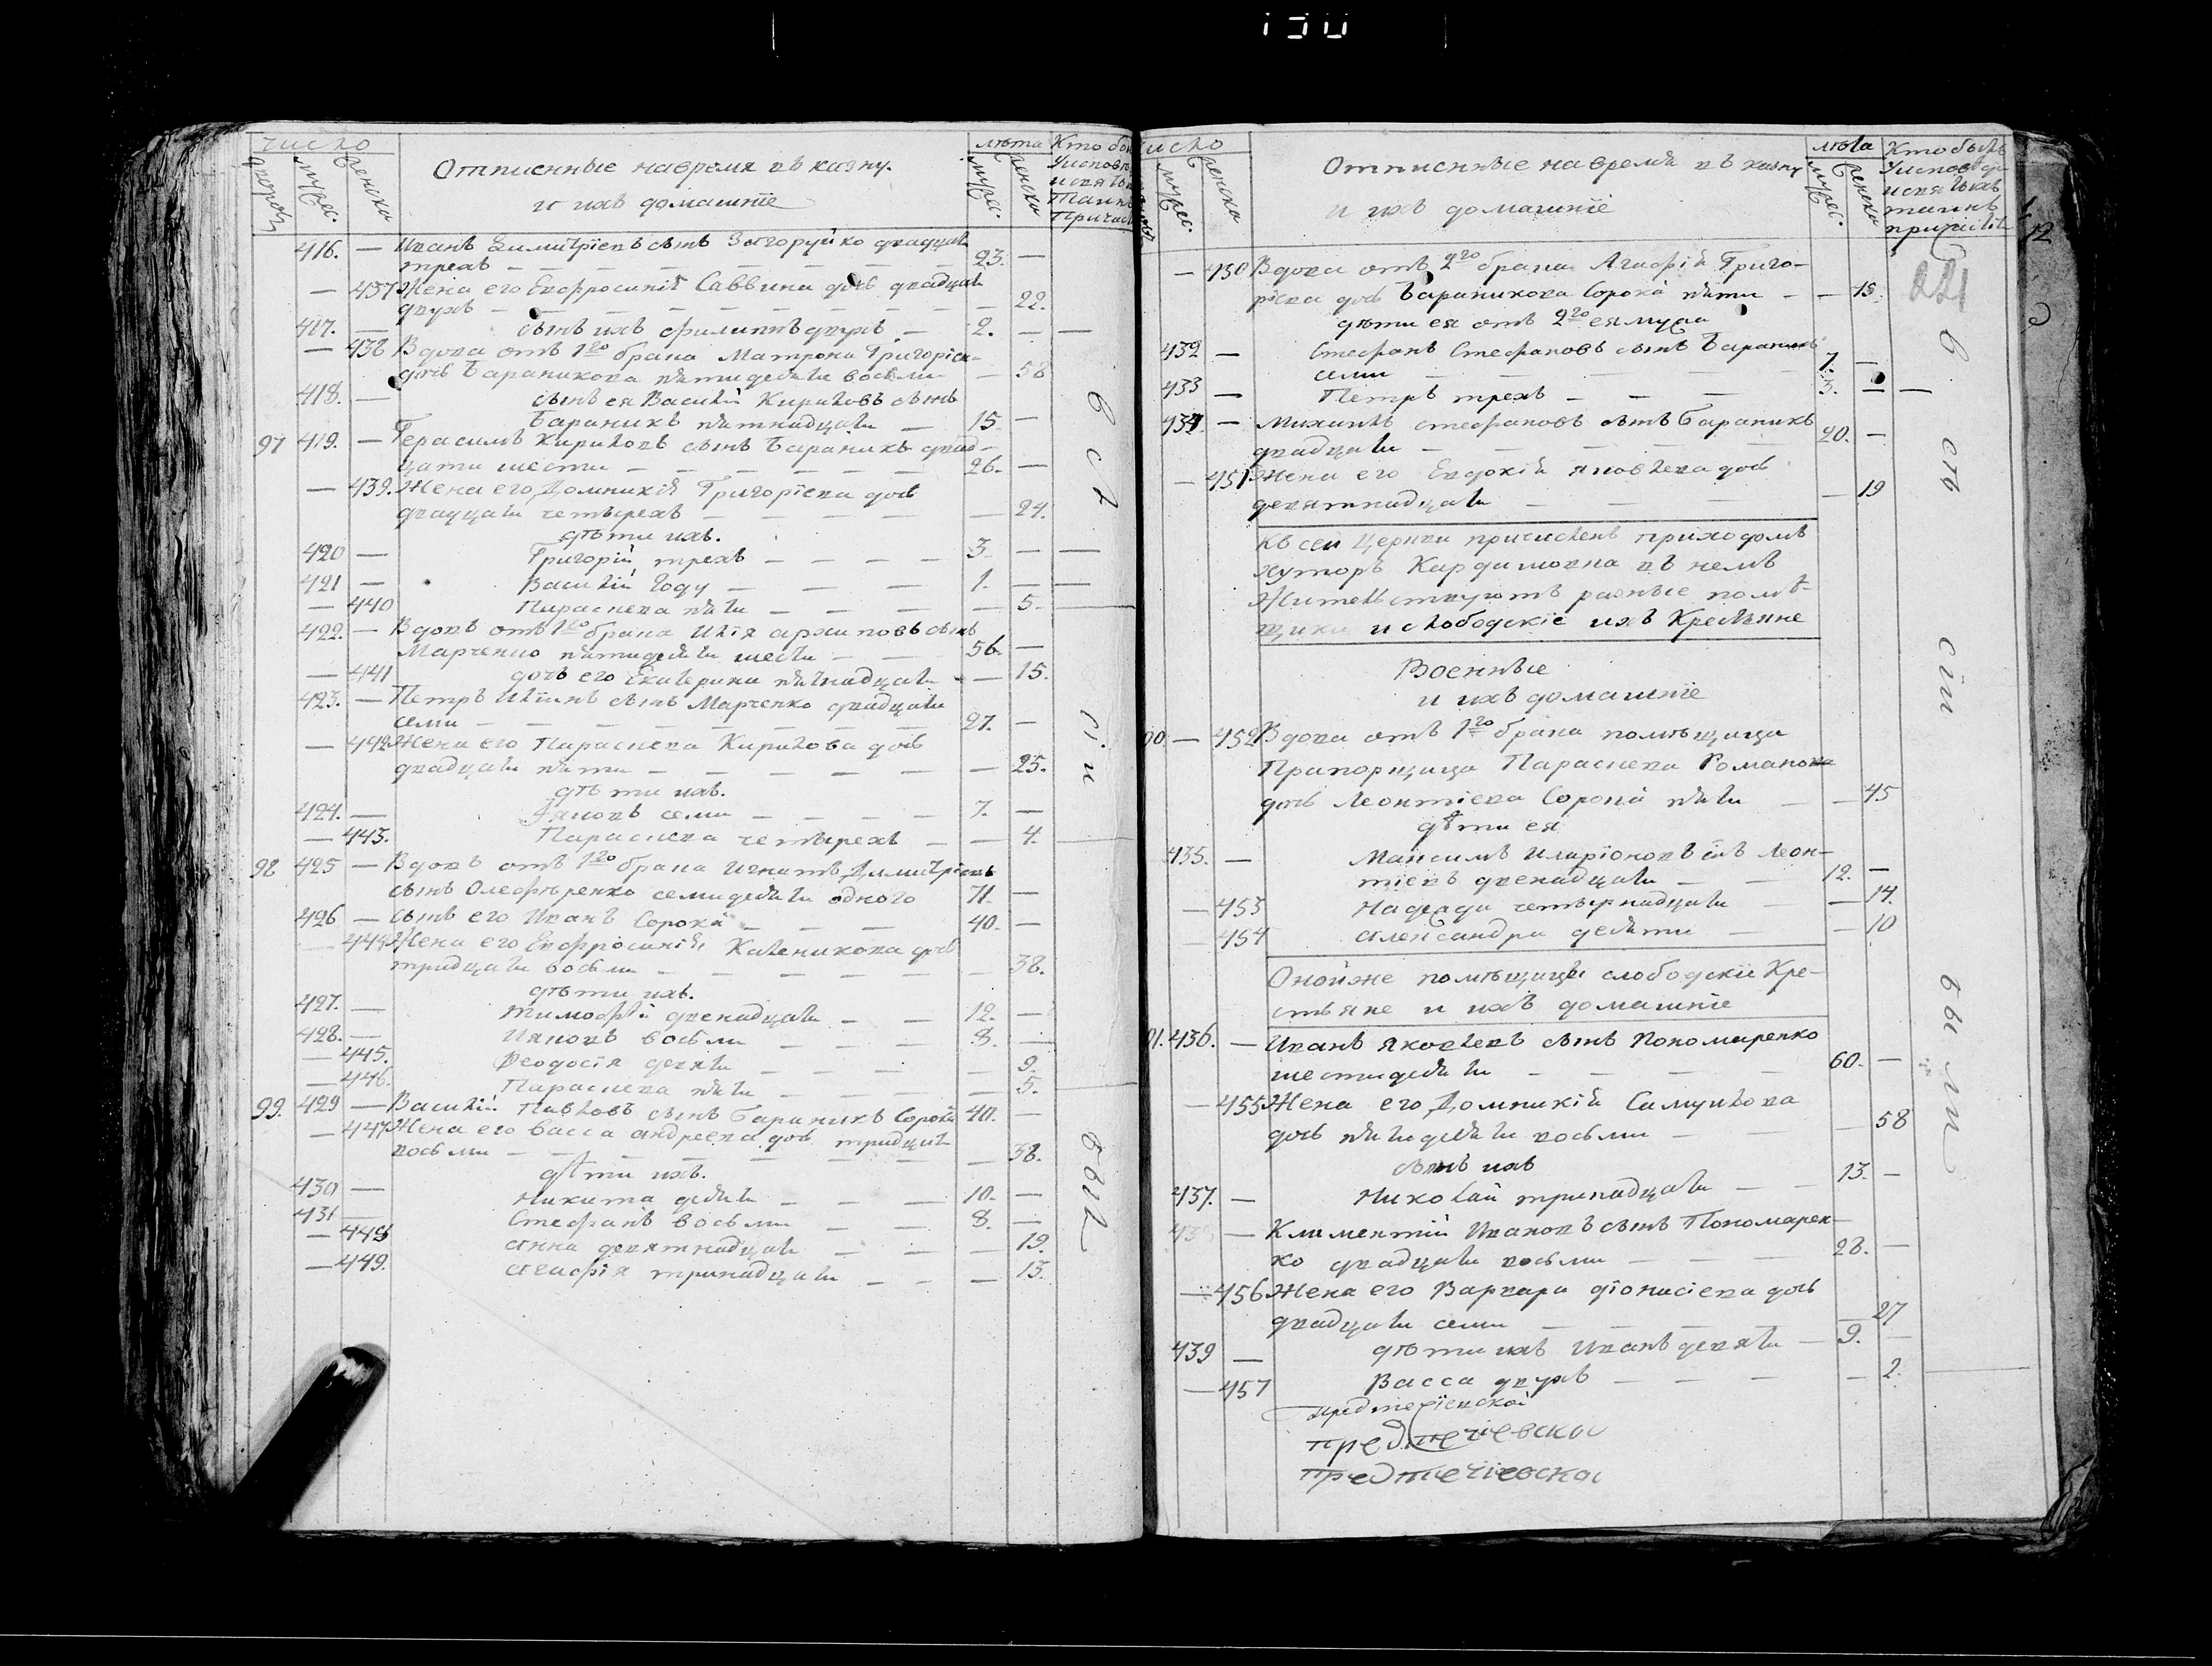 число
дворовъ
мужес.
женска
Отписнные навремя въ казну.
и ихъ домашнїе
лѣта
мужес.
женска
Кто бы
Уисповѣ
и святы
Таинъ
Причас
416. — Иванъ Димитрїевъ сынъ Загоруйко двадцати
трехъ — 23. —
— 437 Жена его Евфросинія Саввина дочь двадцати
двухъ — — 22.
417. — сынъ ихъ филиппъ двухъ — 2. — —
— 438 Вдова отъ 1го брака Матрона Григорїева
дочь Бараникова пятидесяти восьми — 58
418. — сынъ ея Василій Кириловъ сынъ
Бараникъ пятнадцати — 15 —
97 419. — Герасимъ Кириловъ сынъ Бараникъ двад-
цати шести — 26. —
— 439. Жена его Домникія Григорїева дочь
двадцати четырехъ — — 24.
дѣти ихъ.
420 — Григорій трехъ — 3. — —
421 — Василій году — 1. — —
— 440 Параскева пяти — — 5. —
422. — Вдовъ отъ 1го брака Илїя архиповъ сынъ
Марченко пятидесяти шести — 56. —
— 441 дочь его Екатерина пятнадцати — — 15.
423. — Петръ Илїинъ сынъ Марченко двадцати
семи — 27. —
— 442 Жена его Параскева Кирилова дочь
двадцати пяти — — 25.
дѣти ихъ.
424. — Іяковъ семи — 7. —
— 443. Параскева четырехъ — — 4. —
98 425 — Вдовъ отъ 1го брака Игнатъ Димитрїевъ
сынъ Олефѣренко семидесяти одного 71. —
426 — сынъ его Иванъ Сорока — 40. —
— 444 Жена его Евфросинія Каленикова дочь
тридцати восьми — — 38.
дѣти ихъ.
427. — Тимофѣй двенадцати — 12. —
428. — Іяковъ восьми — 8. —
— 445. Феодосїя девяти — — 9.
— 446. Параскева пяти — — 5. —
99. 429 — Василій Павловъ сынъ Бараникъ Сорока 40. —
— 447 Жена его Васса андреева дочь тридцати
восьми — — 38.
дѣти ихъ.
430 — Никита десяти — 10. —
431 — Стефанъ восьми — 8. —
— 448 анна девятнадцати — — 19.
— 449. агафїя тринадцати — — 13.
всѣ сіи были
число
мужес.
женска
Отписнные навремя въ казну
и ихъ домашнїе
лѣта
мужес.
женска
Кто былъ
Уисповѣди
и святыхъ
таинъ
причастія
221
— 450 Вдова отъ 2го брака Агафія Григо-
рїева дочь Бараникова Сорока пяти — — 45.
дѣти ея отъ 2го ея мужа
432 — Стефанъ Стефановъ сынъ Бараникъ
семи — 7. —
433 — Петръ трехъ — 3. — —
434 — Михаилъ стефановъ сынъ Бараникъ
двадцати — 20. —
— 451 Жена его Евдокія яковлева дочь
девятнадцати — — 19
Къ сей Церкви причисленъ приходомъ
хуторъ Кардимовка въ немъ
жительствуютъ разные помѣ-
щики и слободскіе ихъ Крестьяне
Военные
и ихъ домашнїе
00. — 452 Вдова отъ 1го брака помѣщица
Прапорщица Параскева Романова
дочь Леонтїева Сорока пяти — — 45
дѣти ея
435. — Максимъ иларїоновъ снъ Леон-
тїевъ двенадцати — 12. —
— 453 Надежда четырнадцати — — 14.
— 454 александра десяти — — 10
Онойже помѣщицы слободскїе Кре-
стьяне и ихъ домашнїе
01. 436. — Иванъ Яковлевъ сынъ Пономаренко
шестидесяти — 60. —
— 455 Жена его Домникія Самуилова
дочь пятидесяти восьми — — 58
сынъ ихъ
437. — Николай тринадцати — 13. —
438 — Климентій Ивановъ сынъ Пономарен-
ко двадцати восьми — 28. —
— 456 Жена его Варвара дїонисїева дочь
двадцати семи — — 27
439 — дѣти ихъ Иванъ девяти — 9. —
— 457 Васса двухъ — — 2.
предтечїевской
предтечїевской
предтечїевской
всѣ сіи были